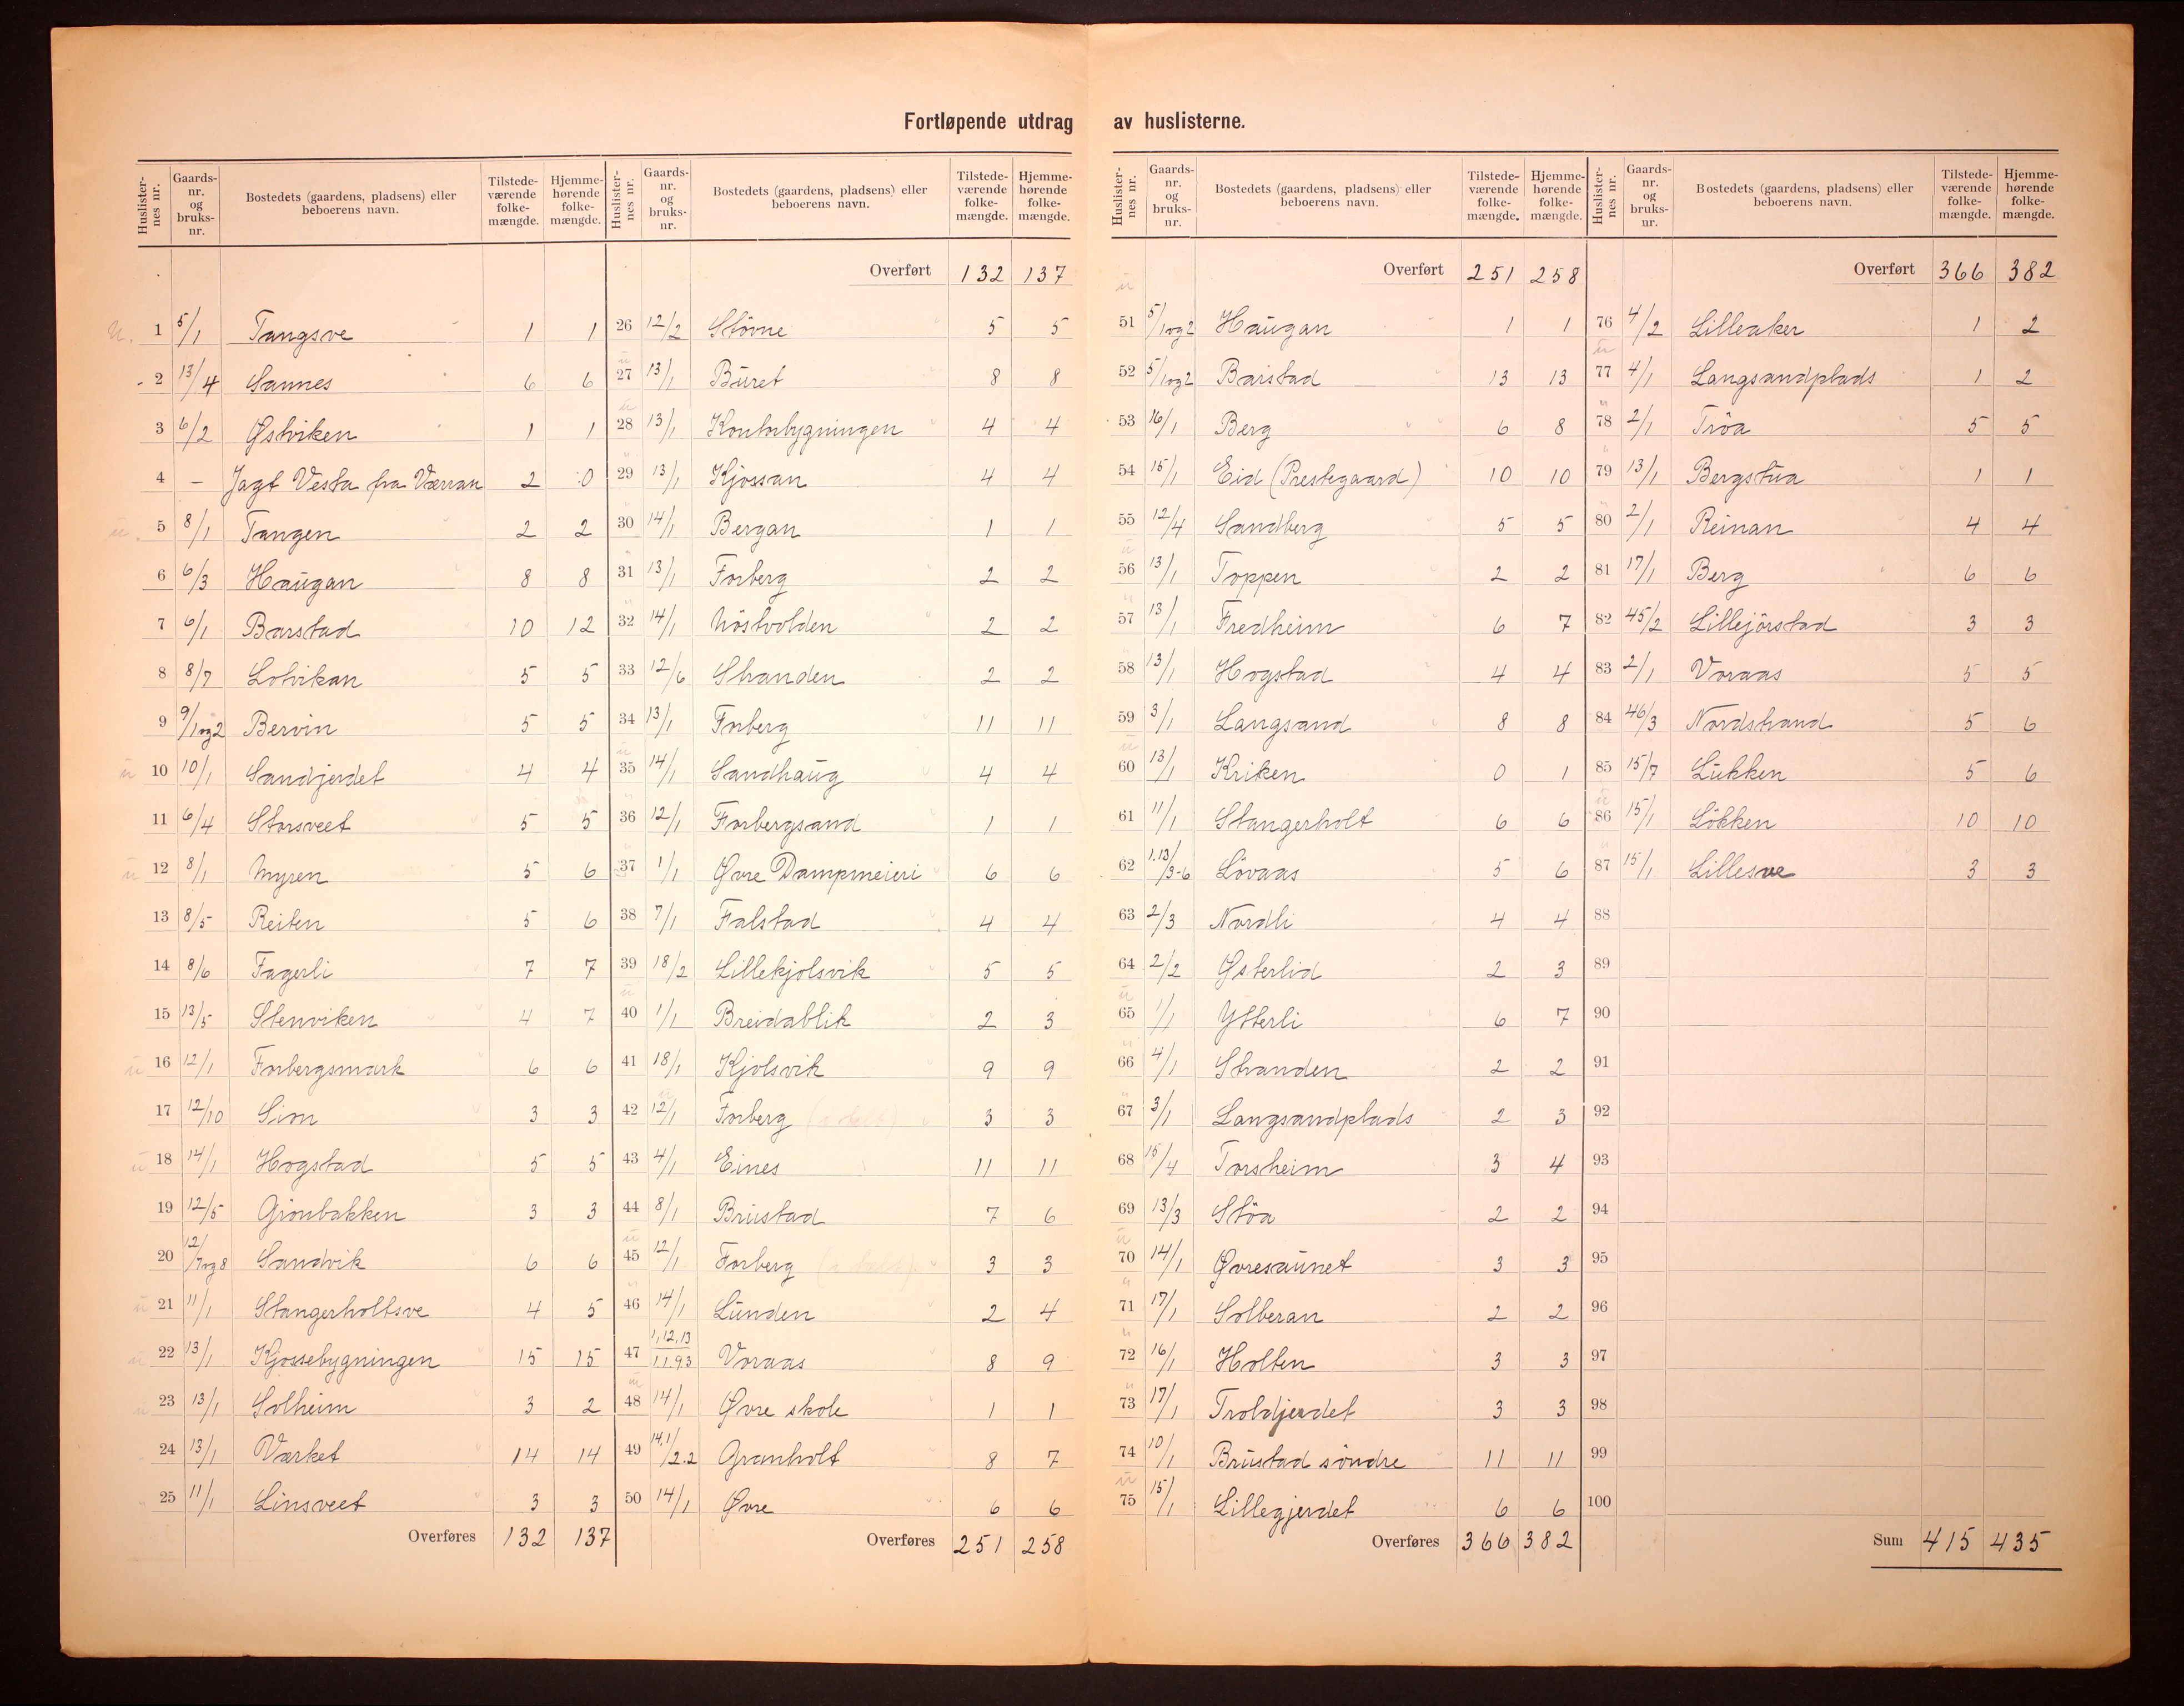 Fortløpende utdrag av huslisterne.
Huslister-nes nr. Gaards-nr. og bruks-nr. Bostedets (gaardens, pladsens) eller beboerens navn. Tilstede-værende folke-mængde. Hjemme-hørende folke-mængde.
1 5/1 Tangsve 1 1
2 13/4 Sannes 6 6
3 6/2 Østviken 1 1
4 – Jagt Vesta fra Værran 2 0
5 8/1 Tangen 2 2
6 6/3 Haugan 8 8
7 6/1 Barstad 10 12
8 8/7 Lotvikan 5 5
9 9/1og2 Bervin 5 5
10 10/1 Sandjerdet 4 4
11 6/4 Storsveet 5 5
12 8/1 Myren 5 6
13 8/5 Reiten 5 6
14 8/6 Fagerli 7 7
15 13/5 Stenviken 4 7
16 12/1 Forbergsmark 6 6
17 12/10 Lion 3 3
18 14/1 Hogstad 5 5
19 12/5 Grönbakken 3 3
20 12/7og8 Sandvik 6 6
21 11/1 Stangerholtsve 4 5
22 13/1 Kjossebygningen 15 15
23 13/1 Solheim 3 2
24 13/1 Værket 14 14
25 11/1 Linsveet 3 3
Overføres 132 137
Huslister-nes nr. Gaards-nr. og bruks-nr. Bostedets (gaardens, pladsens) eller beboerens navn. Tilstede-værende folke-mængde. Hjemme-hørende folke-mængde.
Overført 132 137
26 12/2 Stövne 5 5
27 13/1 Buret 8 8
28 13/1 Kontorbygningen 4 4
29 13/1 Kjossan 4 4
30 14/1 Bergan 1 1
31 13/1 Forberg 2 2
32 14/1 Nöstvolden 2 2
33 12/6 Stranden 2 2
34 13/1 Forberg 11 11
35 14/1 Sandhaug 4 4
36 12/1 Forbergsand 1 1
37 1/1 Øvre Dampmeieri 6 6
38 7/1 Falstad 4 4
39 18/2 Lillekjolsvik 5 5
40 1/1 Breidablik 2 3
41 18/1 Kjolsvik 9 9
42 12/1 Forberg 3 3
43 4/1 Eines 11 11
44 8/1 Brustad 7 6
45 12/1 Forberg 3 3
46 14/1 Lunden 2 4
47 1,12,13/1.1.9.3 Voraas 8 9
48 14/1 Øvre skole 1 1
49 14,1/2.2 Granholt 8 7
50 14/1 Øvre 6 6
Overføres 251 258
Huslister-nes nr. Gaards-nr. og bruks-nr. Bostedets (gaardens, pladsens) eller beboerens navn. Tilstede-værende folke-mængde. Hjemme-hørende folke-mængde.
Overført 251 258
51 5/1og2 Haugan 1 1
52 5/1og2 Barstad 13 13
53 16/1 Berg 6 8
54 15/1 Eid (Prestegaard) 10 10
55 12/4 Sandberg 5 5
56 13/1 Toppen 2 2
57 13/1 Fredheim 6 7
58 13/1 Hogstad 4 4
59 3/1 Langsand 8 8
60 13/1 Kriken 0 1
61 11/1 Stangerholt 6 6
62 1.13/3-6 Lövaas 5 6
63 2/3 Nordli 4 4
64 2/2 Østerlid 2 3
65 1/1 Ytterli 6 7
66 4/1 Stranden 2 2
67 3/1 Langsandplads 2 3
68 15/4 Torsheim 3 4
69 13/3 Stöa 2 2
70 14/1 Øvresaunet 3 3
71 17/1 Solberan 2 2
72 16/1 Holten 3 3
73 17/1 Troldjerdet 3 3
74 10/1 Brustad söndre 11 11
75 15/1 Lillegjerdet 6 6
Overføres 366 382
Huslister-nes nr. Gaards-nr. og bruks-nr. Bostedets (gaardens, pladsens) eller beboerens navn. Tilstede-værende folke-mængde. Hjemme-hørende folke-mængde.
Overført 366 382
76 4/2 Lilleaker 1 2
77 4/1 Langsandplads 1 2
78 2/1 Tröa 5 5
79 13/1 Bergstua 1 1
80 2/1 Reinan 4 4
81 17/1 Berg 6 6
82 45/2 Lillejörstad 3 3
83 2/1 Voraas 5 5
84 46/3 Nordstrand 5 6
85 15/7 Lukken 5 6
86 15/1 Lökken 10 10
87 15/1 Lillesve 3 3
88
89
90
91
92
93
94
95
96
97
98
99
100
Sum 415 435